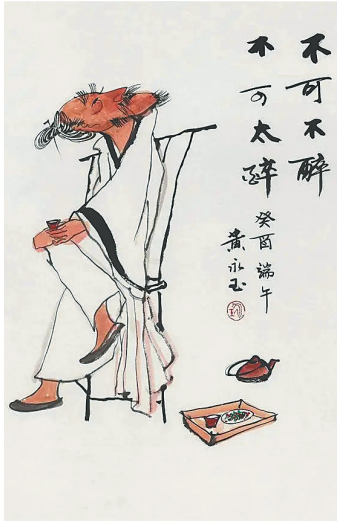 不可不醉
不可太醉
癸酉端午
黄永玉